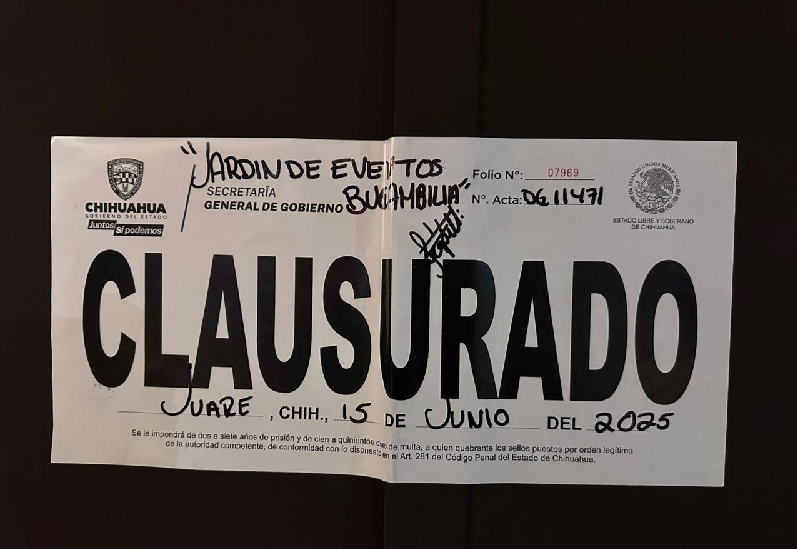 "JARDIN DE EVENTOS
BUGAMBILIA"
CHIHUAHUA
GOBIERNO DEL ESTADO
Juntos Sí podemos
SECRETARÍA
GENERAL DE GOBIERNO
Folio Nº: 07969
Nº. Acta: DG 11471
ESTADO LIBRE Y SOBERANO
DE CHIHUAHUA
CLAUSURADO
JUARE, CHIH., 15 DE JUNIO DEL 2025
Se le impondrá de dos a siete años de prisión y de cien a quinientos días de multa, a quien quebrante los sellos puestos por orden legítima
de la autoridad competente, de conformidad con lo dispuesto en el Art. 281 del Código Penal del Estado de Chihuahua.